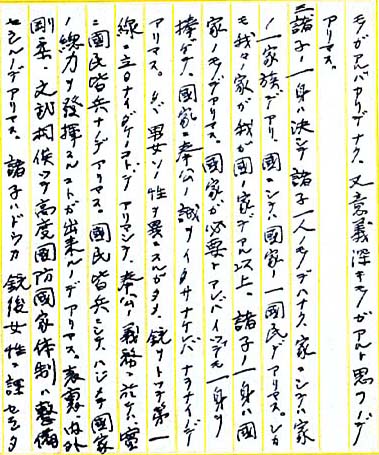 モノガアルバカリデナク、又意義深キモノガアルト思フノデ
アリマス。
三、諸子ノ一身ハ決シテ諸子一人ノモノデハナク、家ニシテハ家
ノ一家族デアリ、国ニシテハ国家ノ一国民デアリマス。シカ
モ我々ノ家ガ我ガ国ノ家デアル以上、諸子ノ一身ハ国
家ノモノデアリマス。国家ガ必要トアレバイツデモ一身ヲ
捧ゲテ、国家ニ奉公ノ誠ヲイタサナケレバナラナイノデ
アリマス。只ダ男女ソノ性ヲ異ニスルガタメ、銃ヲトッテ第一
線ニ立タナイダケノコトデアリマシテ、奉公ノ義務ニ於テハ實
ニ国民皆兵ナノデアリマス。国民皆兵ニシテハジメテ国家
ノ總力ヲ發揮スルコトガ出来ルノデアリマス。表裏、内外
剛柔、文武相俟ツテ高度國防國家体制ハ整備
セラルヽノデアリマス。諸子ハドウカ銃後女性ニ課セラレタ